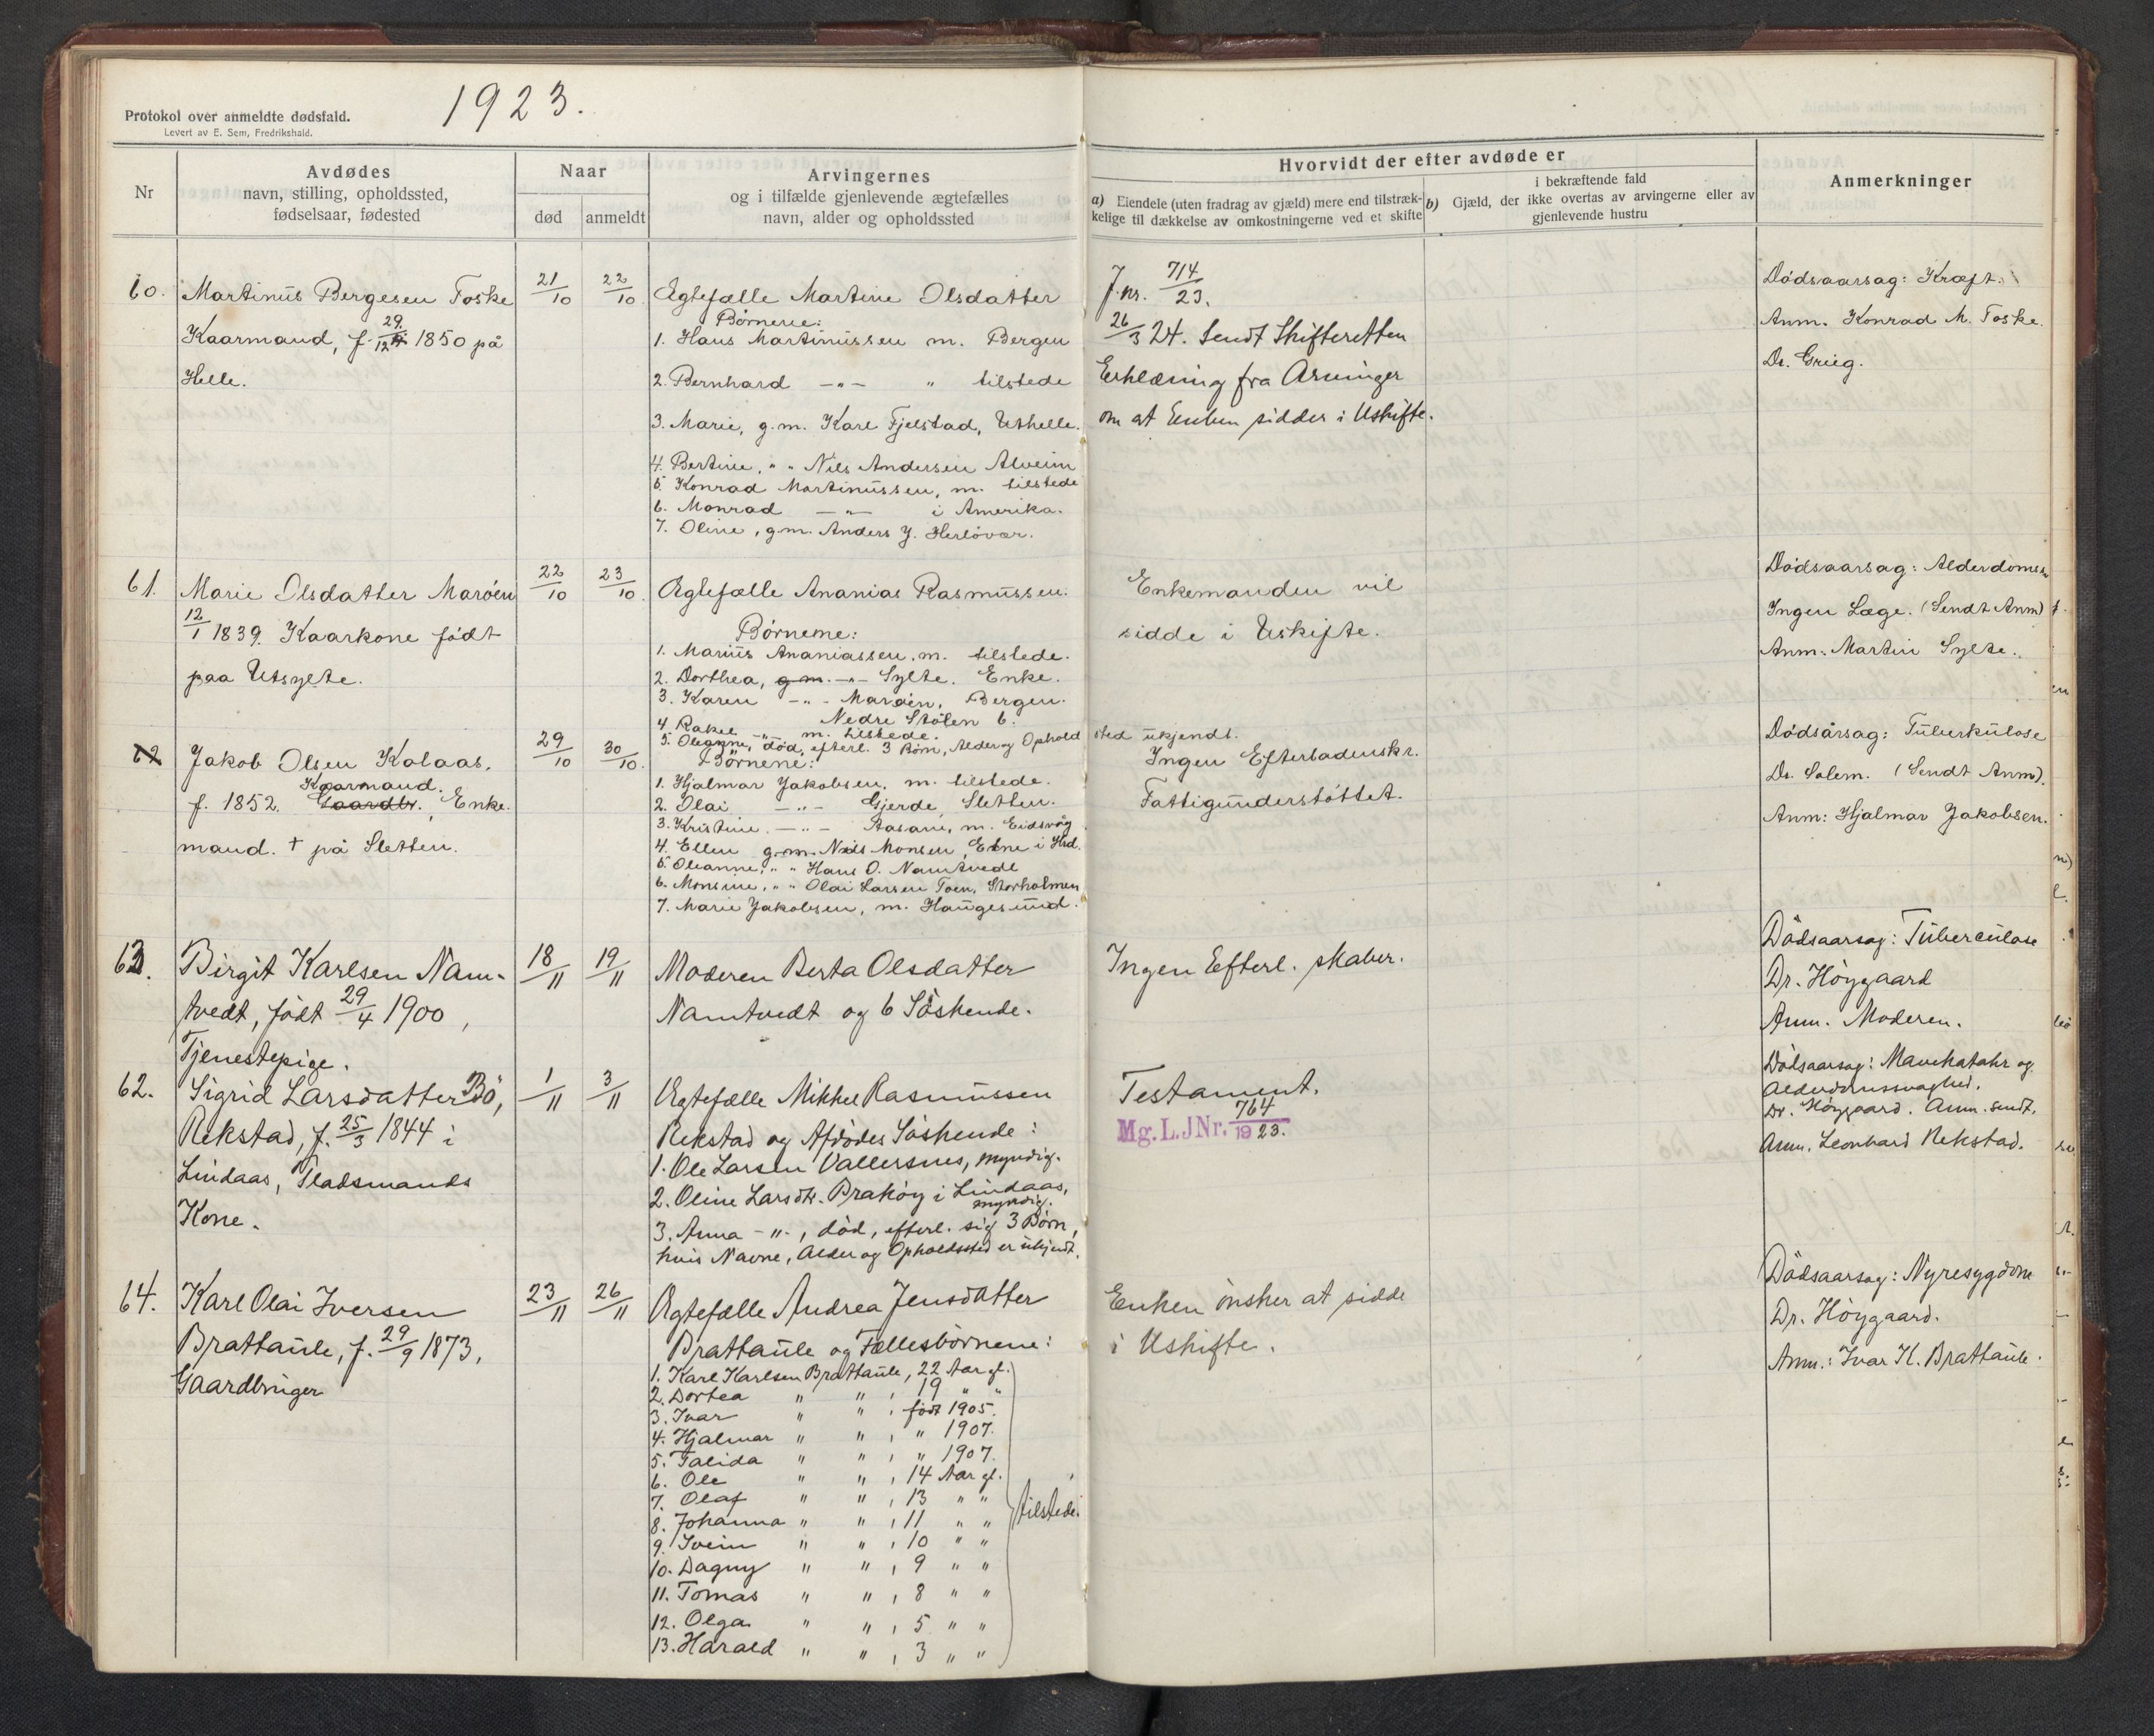 1923.
Protokol over anmeldte dødsfald.
Levert av E. Sem, Fredrikshald.
Nr
Avdødes
navn, stilling, opholdssted,
fødselsaar, fødested
Naar
død
anmeldt
Arvingernes
og i tilfælde gjenlevende ægtefælles
navn, alder og opholdssted
Hvorvidt der efter avdøde er
a) Eiendele (uten fradrag av gjæld) mere end tilstræk-
kelige til dækkelse av omkostningerne ved et skifte
i bekræftende fald
b) Gjæld, der ikke overtas av arvingerne eller av
gjenlevende hustru
Anmerkninger
60.
Martinus Bergesen Foske
Kaarmand, f. 29/12 1850 på
Helle.
21/10
22/10.
Egtefælle Martine Olsdatter
Børnene:
1. Hans Martinussen m. Bergen
2. Bernhard -"- " tilstede
3. Marie, g.m. Karl Fjelstad, Uthelle.
4. Bertine, " " Nils Andersen Alveim
5. Konrad Martinussen, m. tilstede
6. Monrad -"- i Amerika.
7. Oline, g.m. Anders J. Herløvær.
J.nr. 714/23.
26/3 24. Sendt Skifteretten
Erklæring fra Arvinger
om at Enken sidder i Uskifte.
Dødsaarsag: Kræft.
Anm. Konrad M. Foske.
Dr. Grieg.
61.
Marie Olsdatter Marøen
12/1 1839. Kaarkone født
paa Utsylte.
22/10
23/10.
Ægtefælle Ananias Rasmussen.
Børnene:
1. Marius Ananiassen, m. tilstede.
2. Dorthea, g.m. -"- Sylte. Enke.
3. Karen -"- Marøen, Bergen.
Nedre Stølen 6.
4. Rakel -"- m. tilstede.
5. Oleanne, død, efterl. 3 Børn, Alder og Ophold sted ukjendt.
Enkemanden vil
sidde i Uskifte.
Dødsaarsag: Alderdomssv
Ingen Læge. (Sendt Anm)
Anm. Martin Sylte.
62
Jakob Olsen Kolaas.
Kaarmand.
f. 1852. Gaardbr., Enke-
mand. † på Sletten.
29/10
30/10.
Børnene:
1. Hjalmar Jakobsen, m. tilstede.
2. Olai -"- Gjerde, Sletten.
3. Kristine -"- Aasane, m. Eidsvåg
4. Ellen g.m. Nils Monsen, Etne i Hrd.
5. Oleanne, " " Hans O. Namtvedt
6. Monsine, " " Olai Larsen Toen, Storholmen
7. Marie Jakobsen, m. Haugesund.
Ingen Efterladenskr.
Fattigunderstøttet.
Dødsårsag: Tuberkulose
Dr. Solem. (Sendt Anm).
Anm: Hjalmar Jakobsen.
63.
Birgit Karlsen Nam-
tvedt, født 29/4 1900,
Tjenestepige.
18/11
19/11
Moderen Berta Olsdatter
Namtvedt og 6 Søskende.
Ingen Efterl. skaber.
Dødsaarsag: Tuberculose
Dr. Høygaard
Anm. Moderen.
62.
Sigrid Larsdatter Bø,
Rekstad, f. 25/3 1844 i
Lindaas, Pladsmands
Kone.
1/11
3/11
Ægtefælle Mikkel Rasmussen
Rekstad og Afdødes Søskende:
1. Ole Larsen Vallersnes, myndig.
2. Oline Larsdtr. Brakøy i Lindaas,
myndig.
3. Anna -"-, død, efterl. sig 3 Børn,
hvis Navne, Alder og Opholdssted er ukjendt.
Testament.
Mg. L. JNr. 764/1923.
Dødsaarsag: Mavekatahr og
Alderdomssvaghed.
Dr. Høygaard. Anm. sendt.
Anm. Leonhard Rekstad.
64.
Karl Olai Iversen
Brattaule, f. 29/9 1873,
Gaardbruger
23/11
26/11
Ægtefælle Andrea Jensdatter
Brattaule og Fællesbørnene:
1. Karl Karlsen Brattaule, 22 Aar gl.
2. Dortea " " , 19 " "
3. Ivar " " , født 1905.
4. Hjalmar " " , " 1907.
5. Talida " " , " 1907.
6. Ole " " , 14 Aar gl.
7. Olaf " " , 13 " "
8. Johanna " " , 11 " "
9. Svein " " , 10 " "
10. Dagny " " , 9 " "
11. Tomas " " , 8 " "
12. Olga " " , 5 " "
13. Harald " " , 3 " "
tilstede.
Enken ønsker at sidde
i Uskifte.
Dødsaarsag: Nyresygdom
Dr. Høygaard.
Anm.: Ivar K. Brattaule.